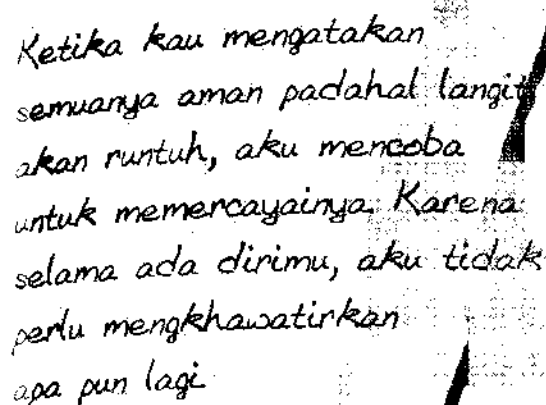 Ketika kau mengatakan
semuanya aman padahal langit
akan runtuh, aku mencoba
untuk memercayainya. Karena
selama ada dirimu, aku tidak
perlu mengkhawatirkan
apa pun lagi